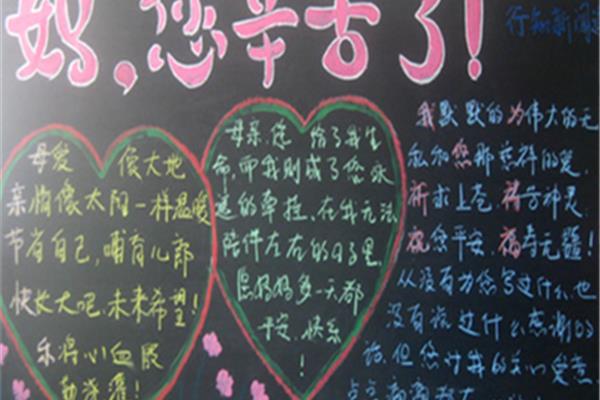 妈,您辛苦了!
行知新闻
母爱 像大地
亲情像太阳一样温暖
节省自己,哺育儿郎
快长大吧,未来希望!
乐将心血
母亲,您给了我生
命,而我则成了您永
远的牵挂,在我无法
陪伴左右的日子里,
愿妈妈每一天都
平安、快乐
!
我默默的为伟大的无
私的您那慈祥的爱,
祈求上苍,祷告神灵,
祝您平安,福寿无疆!
从没有为您写过什么,也
没有说过什么感谢的
话,但您对我的关心爱意,
点点